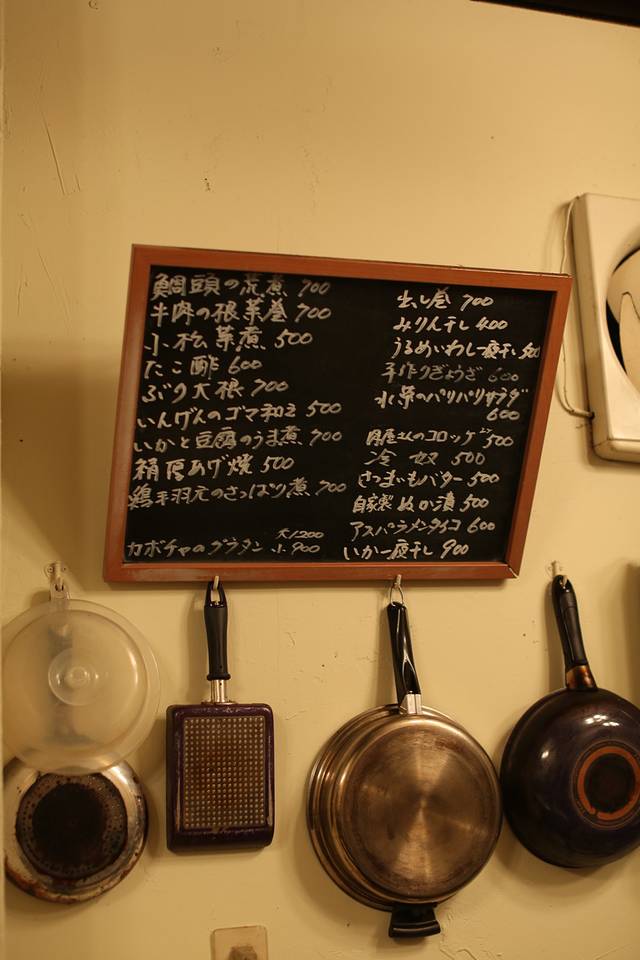 鯛頭の荒煮 700
牛肉の根菜巻 700
小松菜煮 500
たこ酢 600
ぶり大根 700
いんげんのゴマ和え 500
いかと豆腐のうま煮 700
絹厚あげ焼 500
鶏手羽元のさっぱり煮 700
カボチャのグラタン 大1200
小 900
出し巻 700
みりん干し 400
うるめいわし一夜干し 500
手作りぎょうざ 600
水菜のパリパリサラダ
600
肉屋さんのコロッケ 500
冷奴 500
さつまいもバター 500
自家製ぬか漬 500
アスパラメンタイコ 600
いか一夜干し 900